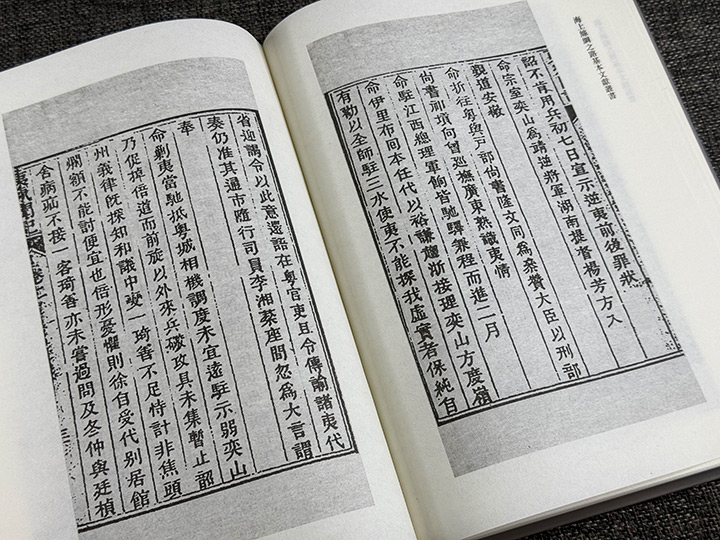 海上絲綢之路基本文獻叢書
詔不肯用兵初七日宣示逆夷前後罪狀
命宗室奕山爲靖逆將軍湖南提督楊芳方入
覲道安徽
命折往粵與戶部尚書隆文同爲叅贊大臣以刑部
尚書祁向曾巡撫廣東熟識夷情
命駐江西總理軍餉皆馳驛兼程而進二月
命伊里布回本任代以裕謙赴浙接理奕山方度嶺
有勸以全師駐三水使夷不能探我虛實者保純自
省迎謁令以此意還語在粵官吏且令傳諭諸夷代
奏仍准其通市隨行司員李湘棻座間忽爲大言謂
奉
命剿夷當馳抵粵城相機調度未宜遠駐示弱奕山
乃促倍道而前旋以外來兵礮攻具未集暫止韶
州義律旣探知和議中變 琦善不足恃計非焦頭
爛額不能討便宜也倍形憂懼則徐自受代別居館
舍病不接 客琦善亦未嘗過問及冬仲與廷楨